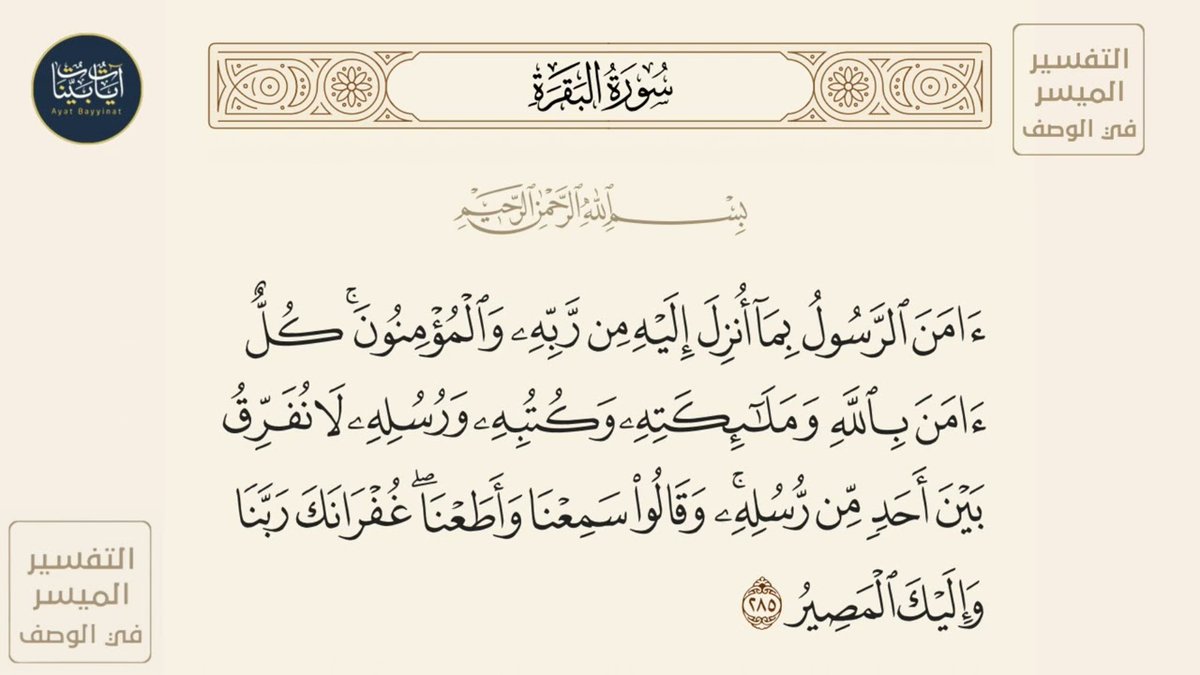 آيات بينات
Ayat Bayyinat
سُورَةُ البَقَرَةِ
التفسير
الميسر
في الوصف
بِسْمِ ٱللَّهِ ٱلرَّحْمَٰنِ ٱلرَّحِيمِ
ءَامَنَ ٱلرَّسُولُ بِمَآ أُنزِلَ إِلَيْهِ مِن رَّبِّهِۦ وَٱلْمُؤْمِنُونَۚ كُلٌّ
ءَامَنَ بِٱللَّهِ وَمَلَٰٓئِكَتِهِۦ وَكُتُبِهِۦ وَرُسُلِهِۦ لَا نُفَرِّقُ
بَيْنَ أَحَدٍ مِّن رُّسُلِهِۦۚ وَقَالُوا۟ سَمِعْنَا وَأَطَعْنَاۖ غُفْرَانَكَ رَبَّنَا
وَإِلَيْكَ ٱلْمَصِيرُ ٢٨٥
التفسير
الميسر
في الوصف